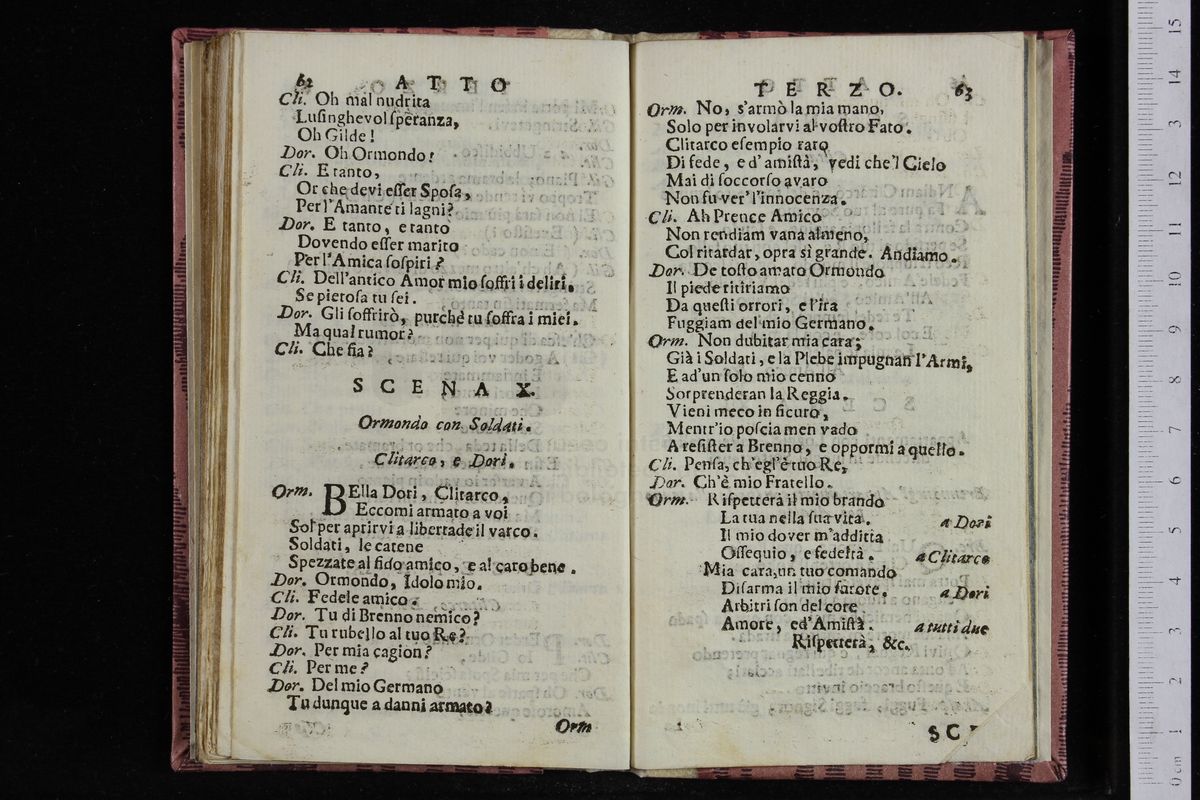 62 ATTO
Cli. Oh mal nudrita
Lusinghevol speranza,
Oh Gilde!
Dor. Oh Ormondo!
Cli. E tanto,
Or che devi esser Sposa,
Per l'Amante ti lagni?
Dor. E tanto, e tanto
Dovendo esser marito
Per l'Amica sospiri?
Cli. Dell'antico Amor mio soffri i deliri,
Se pietosa tu sei.
Dor. Gli soffrirò, purchè tu soffra i miei.
Ma qual rumor?
Cli. Che fia?
SCENA X.
Ormondo con Soldati.
Clitarco, e Dori.
Orm. BElla Dori, Clitarco,
Eccomi armato a voi
Sol per aprirvi a libertade il varco.
Soldati, le catene
Spezzate al fido amico, e al caro bene.
Dor. Ormondo, Idolo mio.
Cli. Fedele amico.
Dor. Tu di Brenno nemico?
Cli. Tu rubello al tuo Re?
Dor. Per mia cagion?
Cli. Per me?
Dor. Del mio Germano
Tu dunque a danni armato?
Orm
TERZO. 63
Orm. No, s'armò la mia mano,
Solo per involarvi al vostro Fato.
Clitarco esempio raro
Di fede, e d'amistà, vedi che'l Cielo
Mai di soccorso avaro
Non fu ver' l'innocenza.
Cli. Ah Prence Amico
Non rendiam vana almeno,
Col ritardar, opra sì grande. Andiamo.
Dor. De tosto amato Ormondo
Il piede ritiriamo
Da questi orrori, e l'ira
Fuggiam del mio Germano.
Orm. Non dubitar mia cara;
Già i Soldati, e la Plebe impugnan l'Armi,
E ad'un solo mio cenno
Sorprenderan la Reggia.
Vieni meco in sicuro,
Mentr'io poscia men vado
A resister a Brenno, e oppormi a quello.
Cli. Pensa, ch'egl'è tuo Re,
Dor. Ch'è mio Fratello.
Orm. Rispetterà il mio brando
La tua nella sua vita. a Dori
Il mio dover m'additta
Ossequio, e fedeltà. a Clitarco
Mia cara, un tuo comando
Disarma il mio furore. a Dori
Arbitri son del core
Amore, ed'Amistà. a tutti due
Rispetterà, &c.